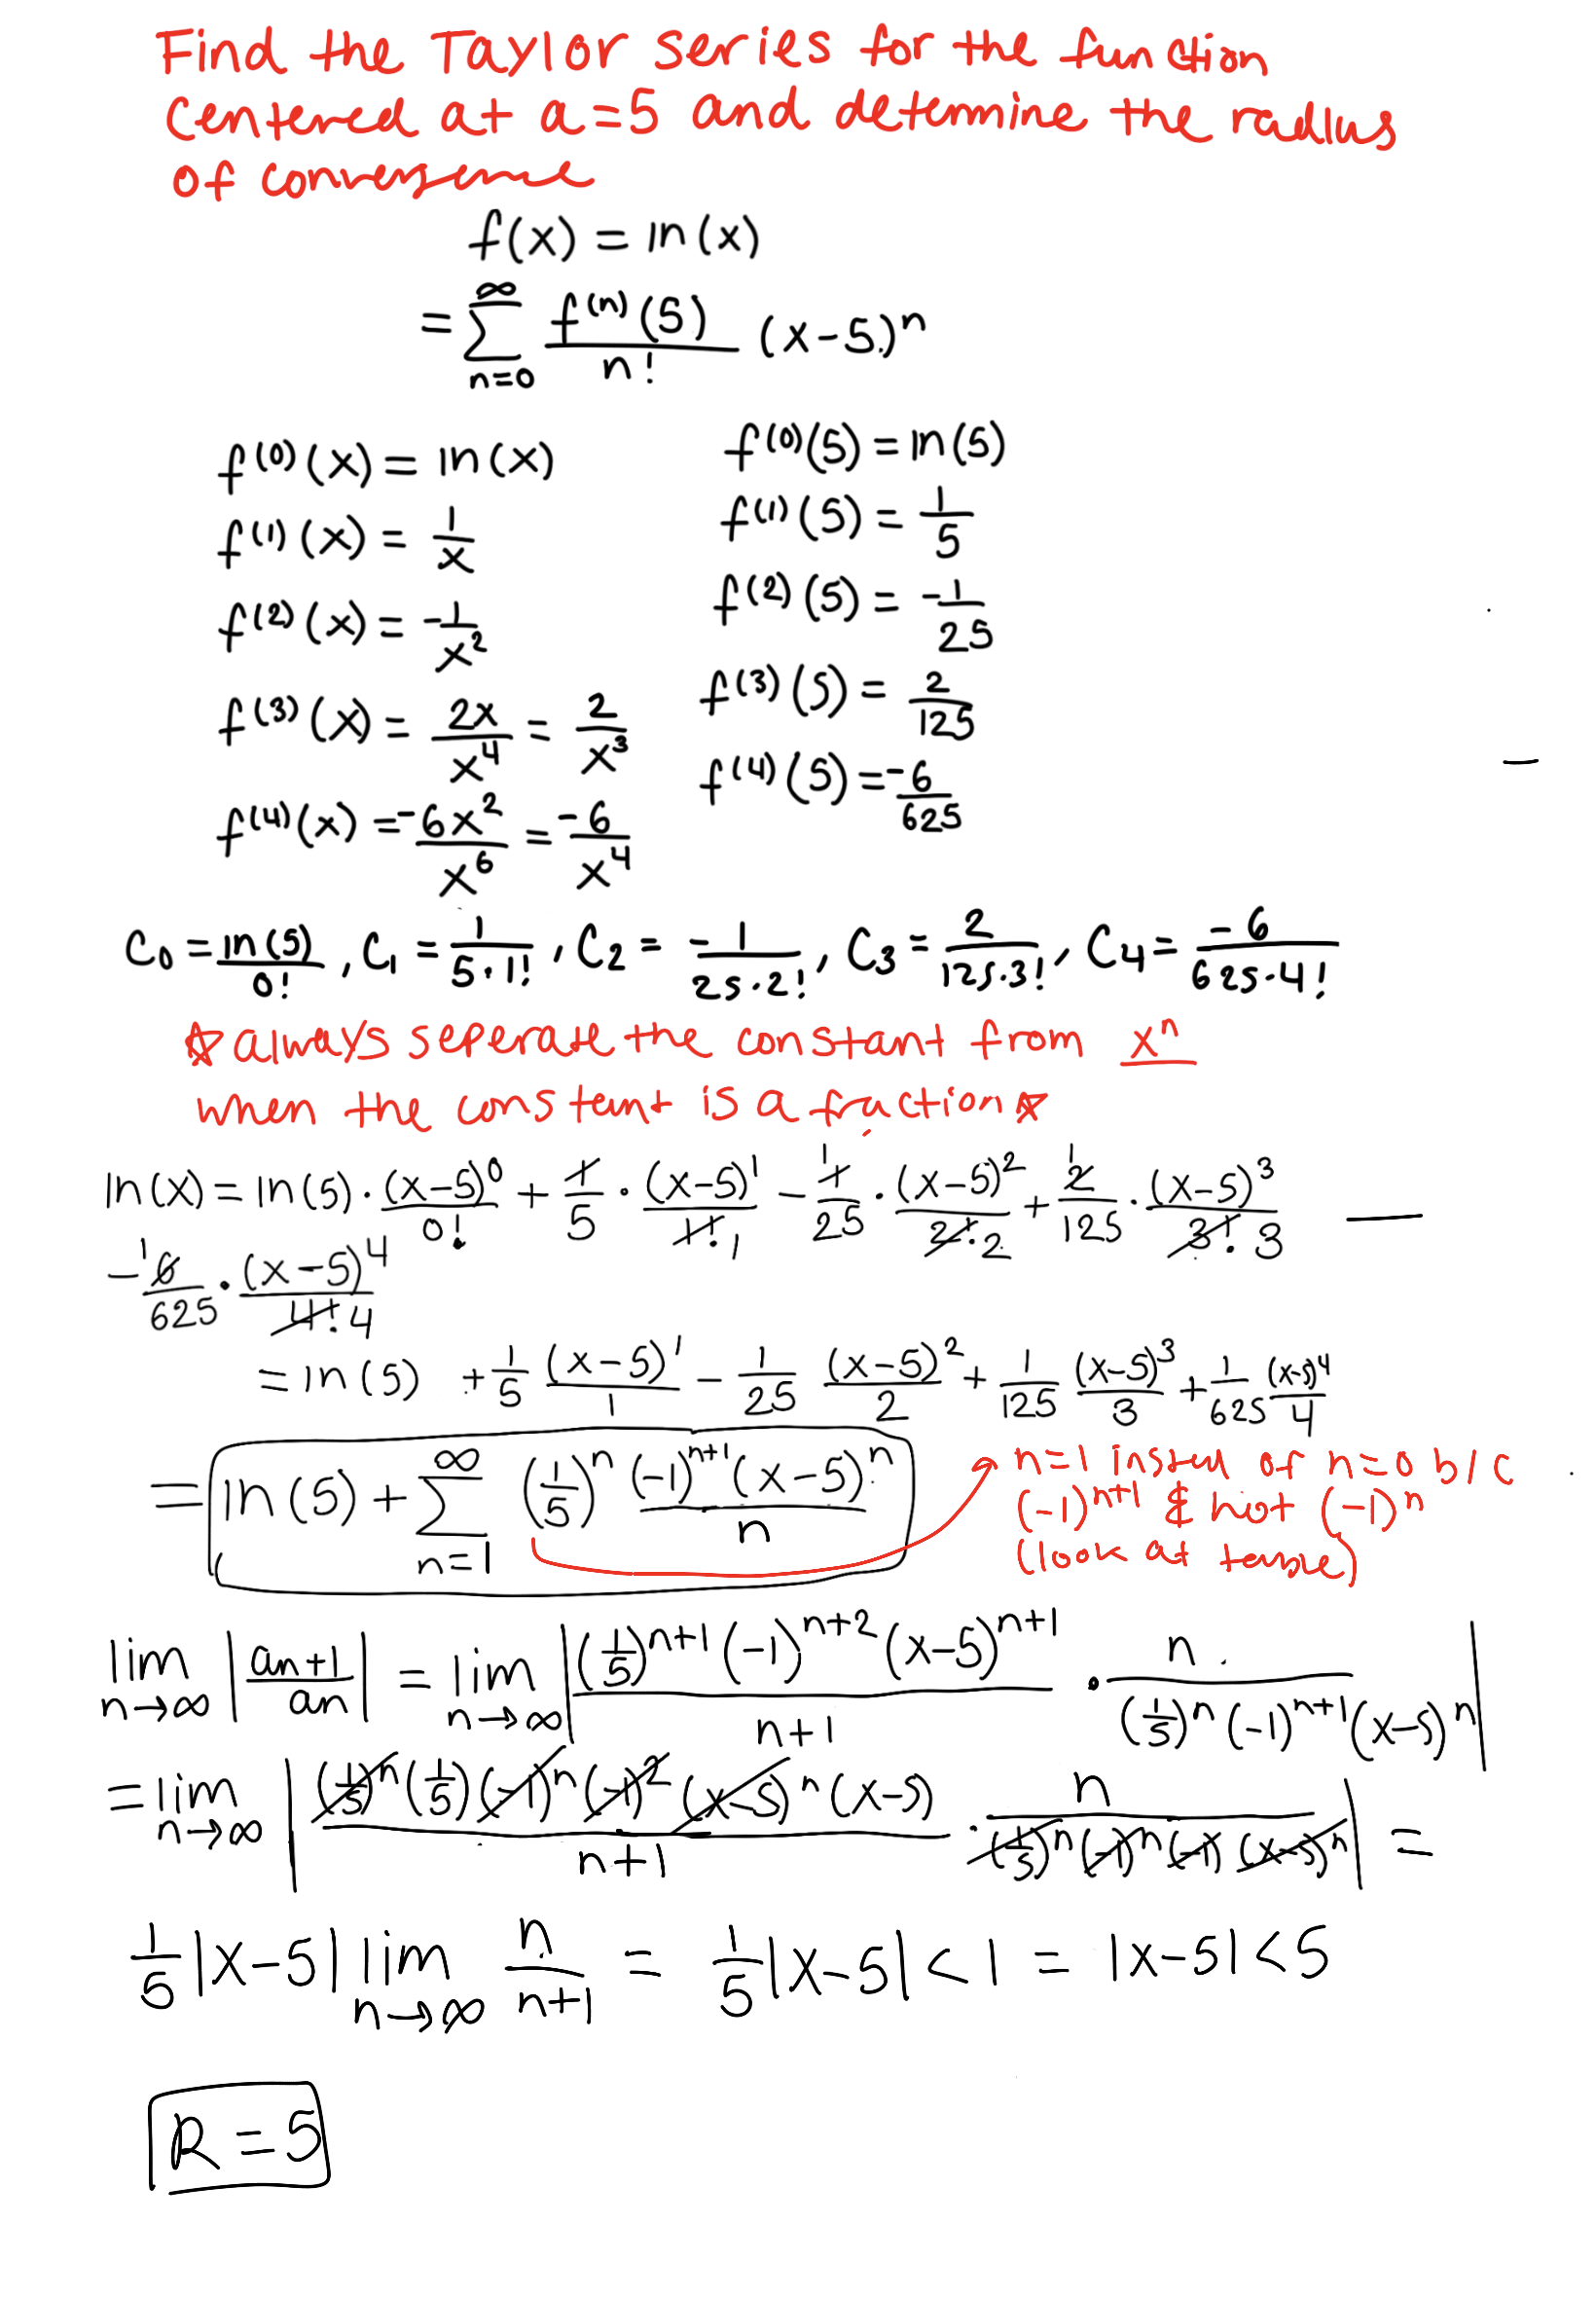 Find the Taylor series for the function
centered at a=5 and determine the radius
of convergence
f(x) = ln(x)
= ∑_{n=0}^{∞} f^(n)(5)/n! (x-5)^n
f^(0)(x) = ln(x)   f^(0)(5) = ln(5)
f^(1)(x) = 1/x   f^(1)(5) = 1/5
f^(2)(x) = -1/x^2   f^(2)(5) = -1/25
f^(3)(x) = 2x/x^4 = 2/x^3   f^(3)(5) = 2/125
f^(4)(x) = -6x^2/x^6 = -6/x^4   f^(4)(5) = -6/625
C0 = ln(5)/0!, C1 = 1/(5·1!), C2 = -1/(25·2!), C3 = 2/(125·3!), C4 = -6/(625·4!)
☆ always seperate the constant from x^n
when the constant is a fraction ☆
ln(x) = ln(5)·(x-5)^0/0! + 1/5 · (x-5)^1/1! 1 - 1 1/25 · (x-5)^2/2! 2 + 1 2/125 · (x-5)^3/3! 3 —
- 1 6/625 · (x-5)^4/4! 4
= ln(5) + 1/5 (x-5)^1/1 - 1/25 (x-5)^2/2 + 1/125 (x-5)^3/3 + 1/625 (x-5)^4/4
= ln(5) + ∑_{n=1}^{∞} (1/5)^n (-1)^{n+1}(x-5)^n/n
n=1 instead of n=0 b/c
(-1)^{n+1} & not (-1)^n
(look at table)
lim_{n→∞} |an+1/an| = lim_{n→∞} |(1/5)^{n+1}(-1)^{n+2}(x-5)^{n+1}/(n+1) · n/((1/5)^n(-1)^{n+1}(x-5)^n)|
= lim_{n→∞} |(1/5)^n(1/5)(-1)^n(-1)^2(x-5)^n(x-5)/(n+1) · n/((1/5)^n(-1)^n(-1)(x-5)^n)| =
1/5|x-5| lim_{n→∞} n/(n+1) = 1/5|x-5| < 1 = |x-5| < 5
R = 5